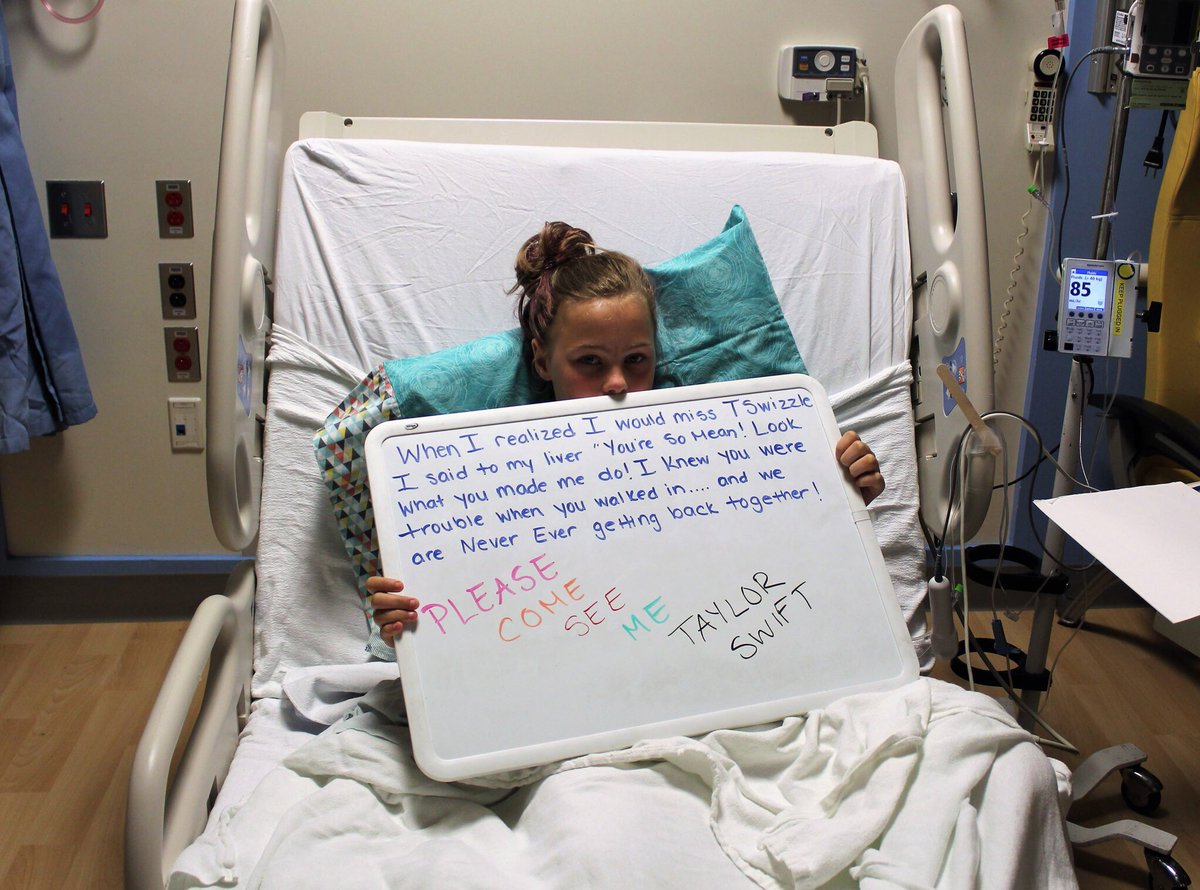 When I realized I would miss TSwizzle
I said to my liver "You're So Mean! Look
what you made me do! I knew you were
trouble when you walked in.... and we
are Never Ever getting back together!
PLEASE
COME
SEE
ME
TAYLOR
SWIFT
Fluids
85
mL/hr
KEEP PLUGGED IN